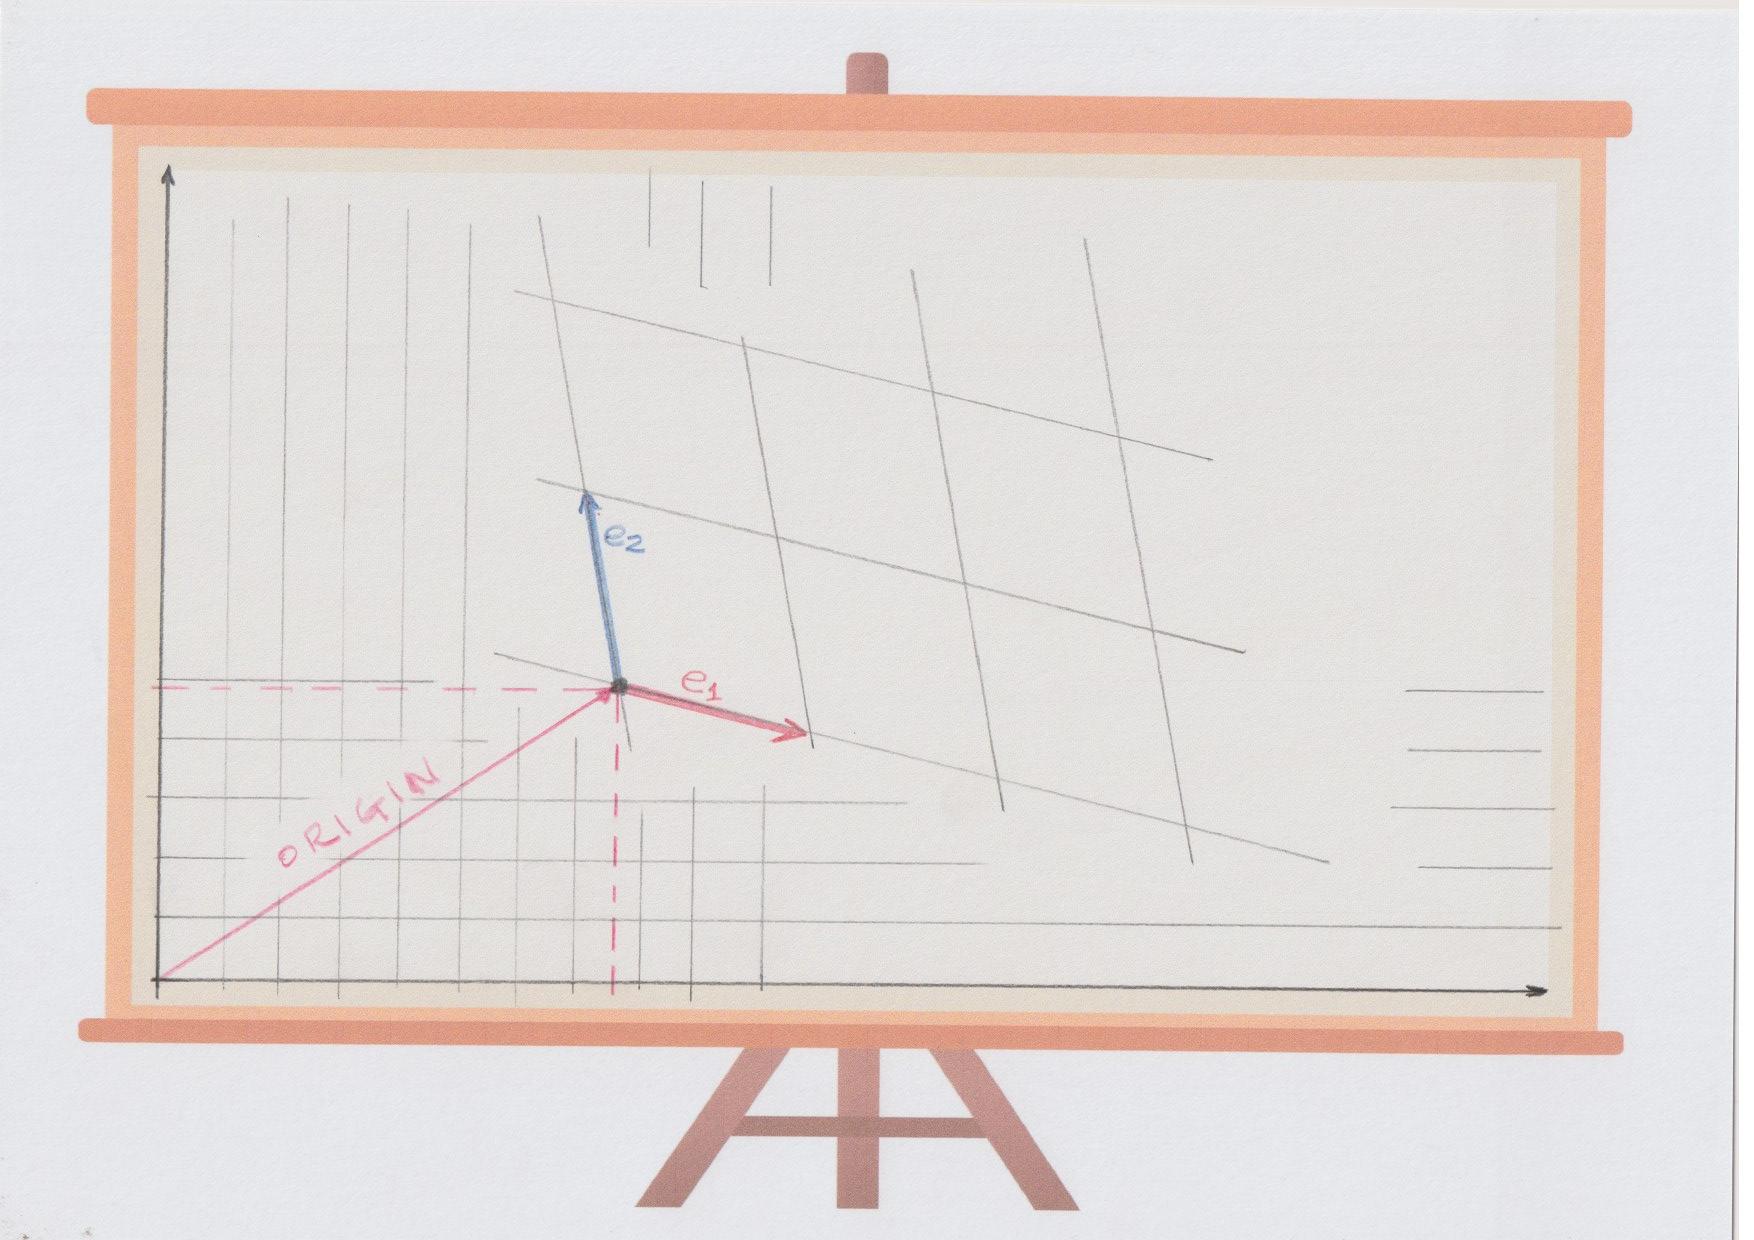 e2
e1
ORIGIN